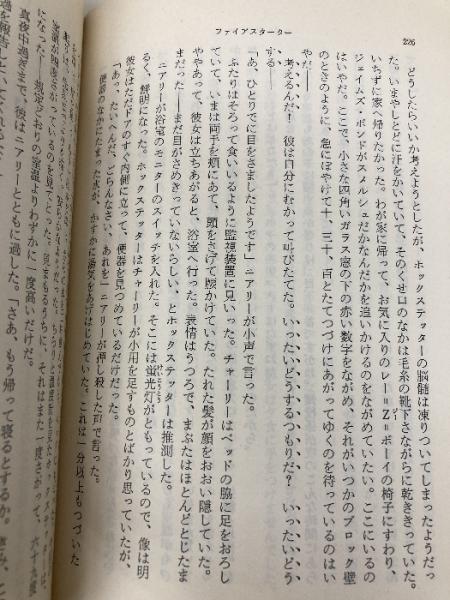 226
ファイアスターター
どうしたらいいか考えようとしたが、ホックステッターの脳髄は凍りついてしまったようだっ
た。いまやしとどに汗をかいていて、そのくせ口のなかは毛糸の靴下さながらに乾ききっていた。
いちずに家へ帰りたかった。わが家に帰って、お気に入りのレー＝Ｚ＝ボーイの椅子にすわり、
ジェイムズ・ボンドがスメルシュだかなんだかを追いかけるのをながめていたい。ここにいるの
はいやだ。ここで、小さな四角いガラス窓の下の赤い数字をながめ、それがいつかのブロック壁
のときのように、急にぼやけて十、三十、百とたてつづけにあがってゆくのを待っているのはい
やだ――
考えるんだ！　彼は自分にむかって叫びたてた。いったいどうするつもりだ？　いったいどう
する――
「あ、ひとりでに目をさましたようです」ニアリーが小声で言った。
ふたりはそろって食いいるように監視装置に見いった。チャーリーはベッドの脇に足をおろし
ていて、いまは両手を頬にあて、頭をさげて腰かけていた。たれた髪が顔をおおい隠していた。
ややあって、彼女は立ちあがると、浴室へ行った。表情はうつろで、まぶたはほとんどとじたま
まだった――まだ目がさめきっていないらしい、とホックステッターは推測した。
ニアリーが浴室のモニターのスイッチを入れた。そこには蛍光灯がともっているので、像は明
るく、鮮明になった。ホックステッターはチャーリーが小用を足すものとばかり思っていたが、
彼女はただドアのすぐ内側に立って、便器を見つめているだけだった。
「あっ、たいへんだ、ごらんなさい、あれを」ニアリーが押し殺した声で言った。
便器のなかにたまった水が、かすかに湯気をあげはじめていた。これは一分以上もつづいた
になった――規定どおりの室温よりわずかに一度高いだけだ。
真夜中過ぎまで、彼はニアリーとともに過した。「さあ、もう帰って寝るとするか。